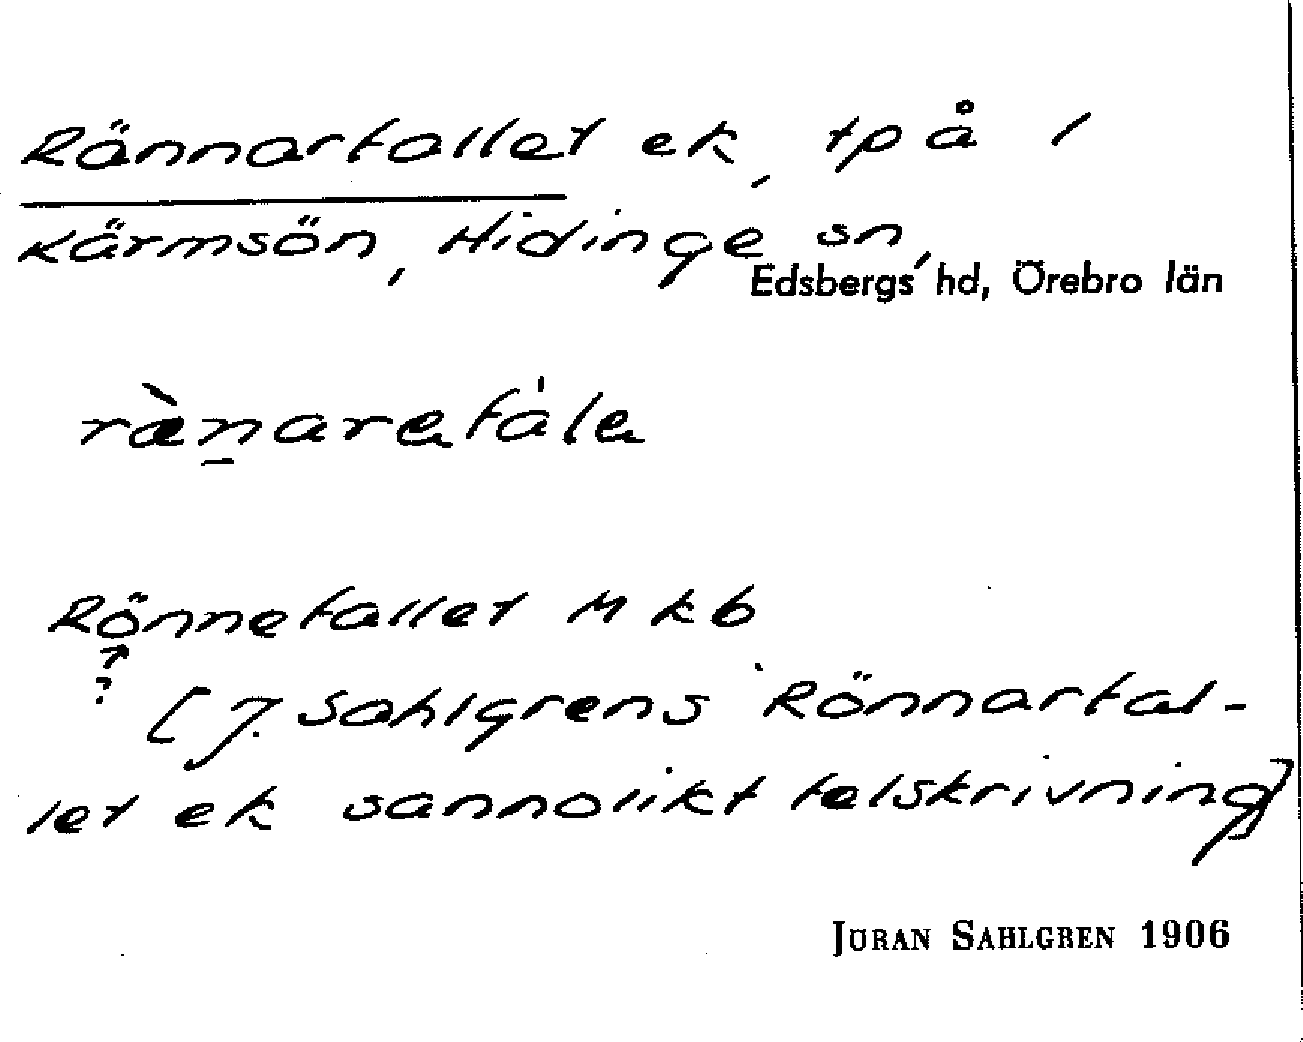 Rännarfallet ek, tpå 1
Kärmsön, Hidinge sn,
Edsbergs hd, Örebro län
ræ̀n̲arefála
Rönnefallet Mkb
↗
? [J. Sahlgrens Rönnarfal-
let ek sannolikt felskrivning]
JÖRAN SAHLGREN 1906